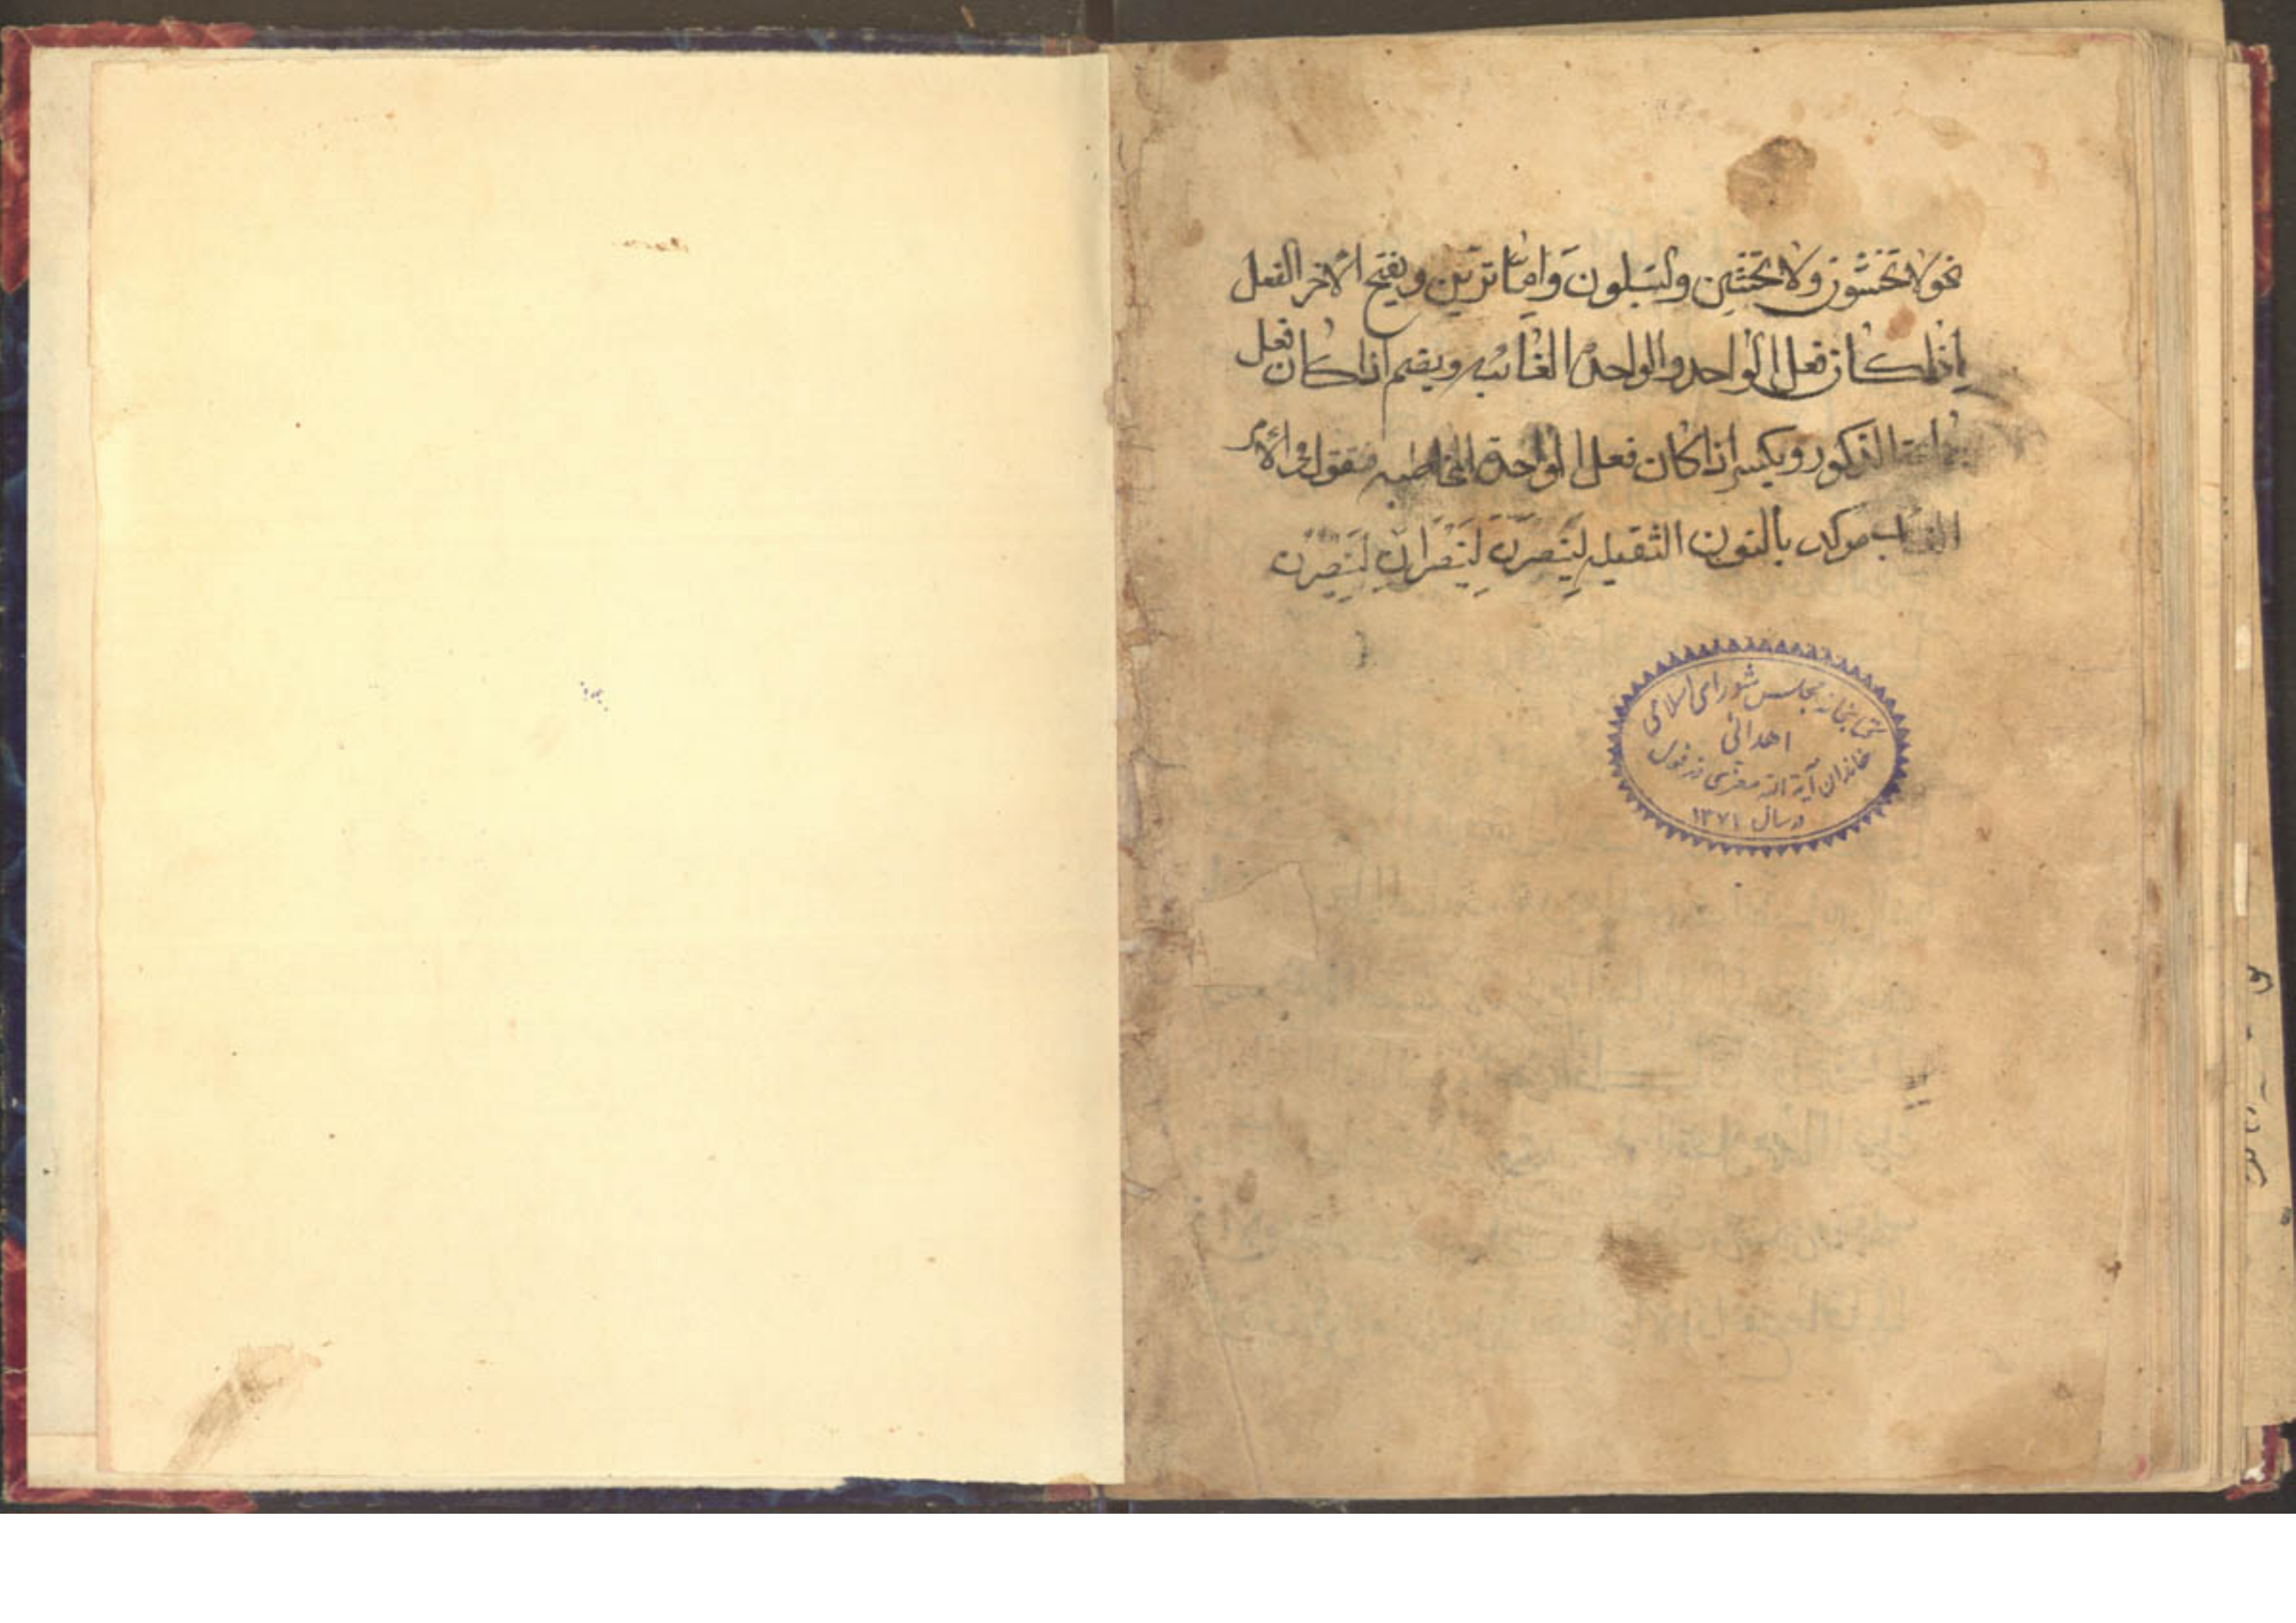 نحو لا تخشون ولا تخشين ولتبلون وَامّا ترَيِنّ ويفتح الآخر الفعل
اِذا كان فعل الواحد والواحدة الغائبه ويضم اذا كان فعل
الذكور ويكسر اذا كان فعل الواحدة المخاطبه فتقول فى الأمر
موكدا بالنون الثقيله لِيَنْصرَنّ لِيَنْصرَانِّ لِيَنْصِرُنّ
كتابخانه مجلس شورای اسلامی
اهدائی
خاندان آیة الله معزی دزفول
در سال ۱۳۷۱